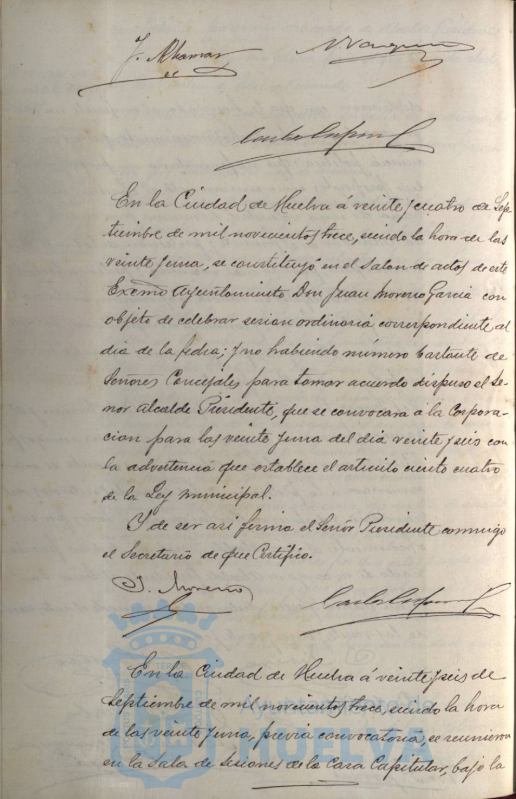 J. Alhamar
Vazquez
En la Ciudad de Huelva á veinte y cuatro de Sep-
tiembre de mil novecientos trece, siendo la hora de las
veinte y una, se constituyó en el Salon de actos de este
Excmo Ayuntamiento Don Juan Moreno Garcia con
objeto de celebrar sesion ordinaria correspondiente al
dia de la fecha; y no habiendo número bastante de
Señores Concejales, para tomar acuerdo dispuso el Se-
ñor Alcalde Presidente, que se convocara á la Corpora-
cion para las veinte y una del dia veinte y seis con
la advertencia que establece el articulo ciento cuatro
de la Ley municipal.
Y de ser asi firma el Señor Presidente conmigo
el Secretario de que Certifico.
J. Moreno
En la Ciudad de Huelva á veinte y seis de
Septiembre de mil novecientos trece, siendo la hora
de las veinte y una, previa convocatoria, se reunieron
en la Sala de Sesiones de la Casa Capitular, bajo la
HUELVA